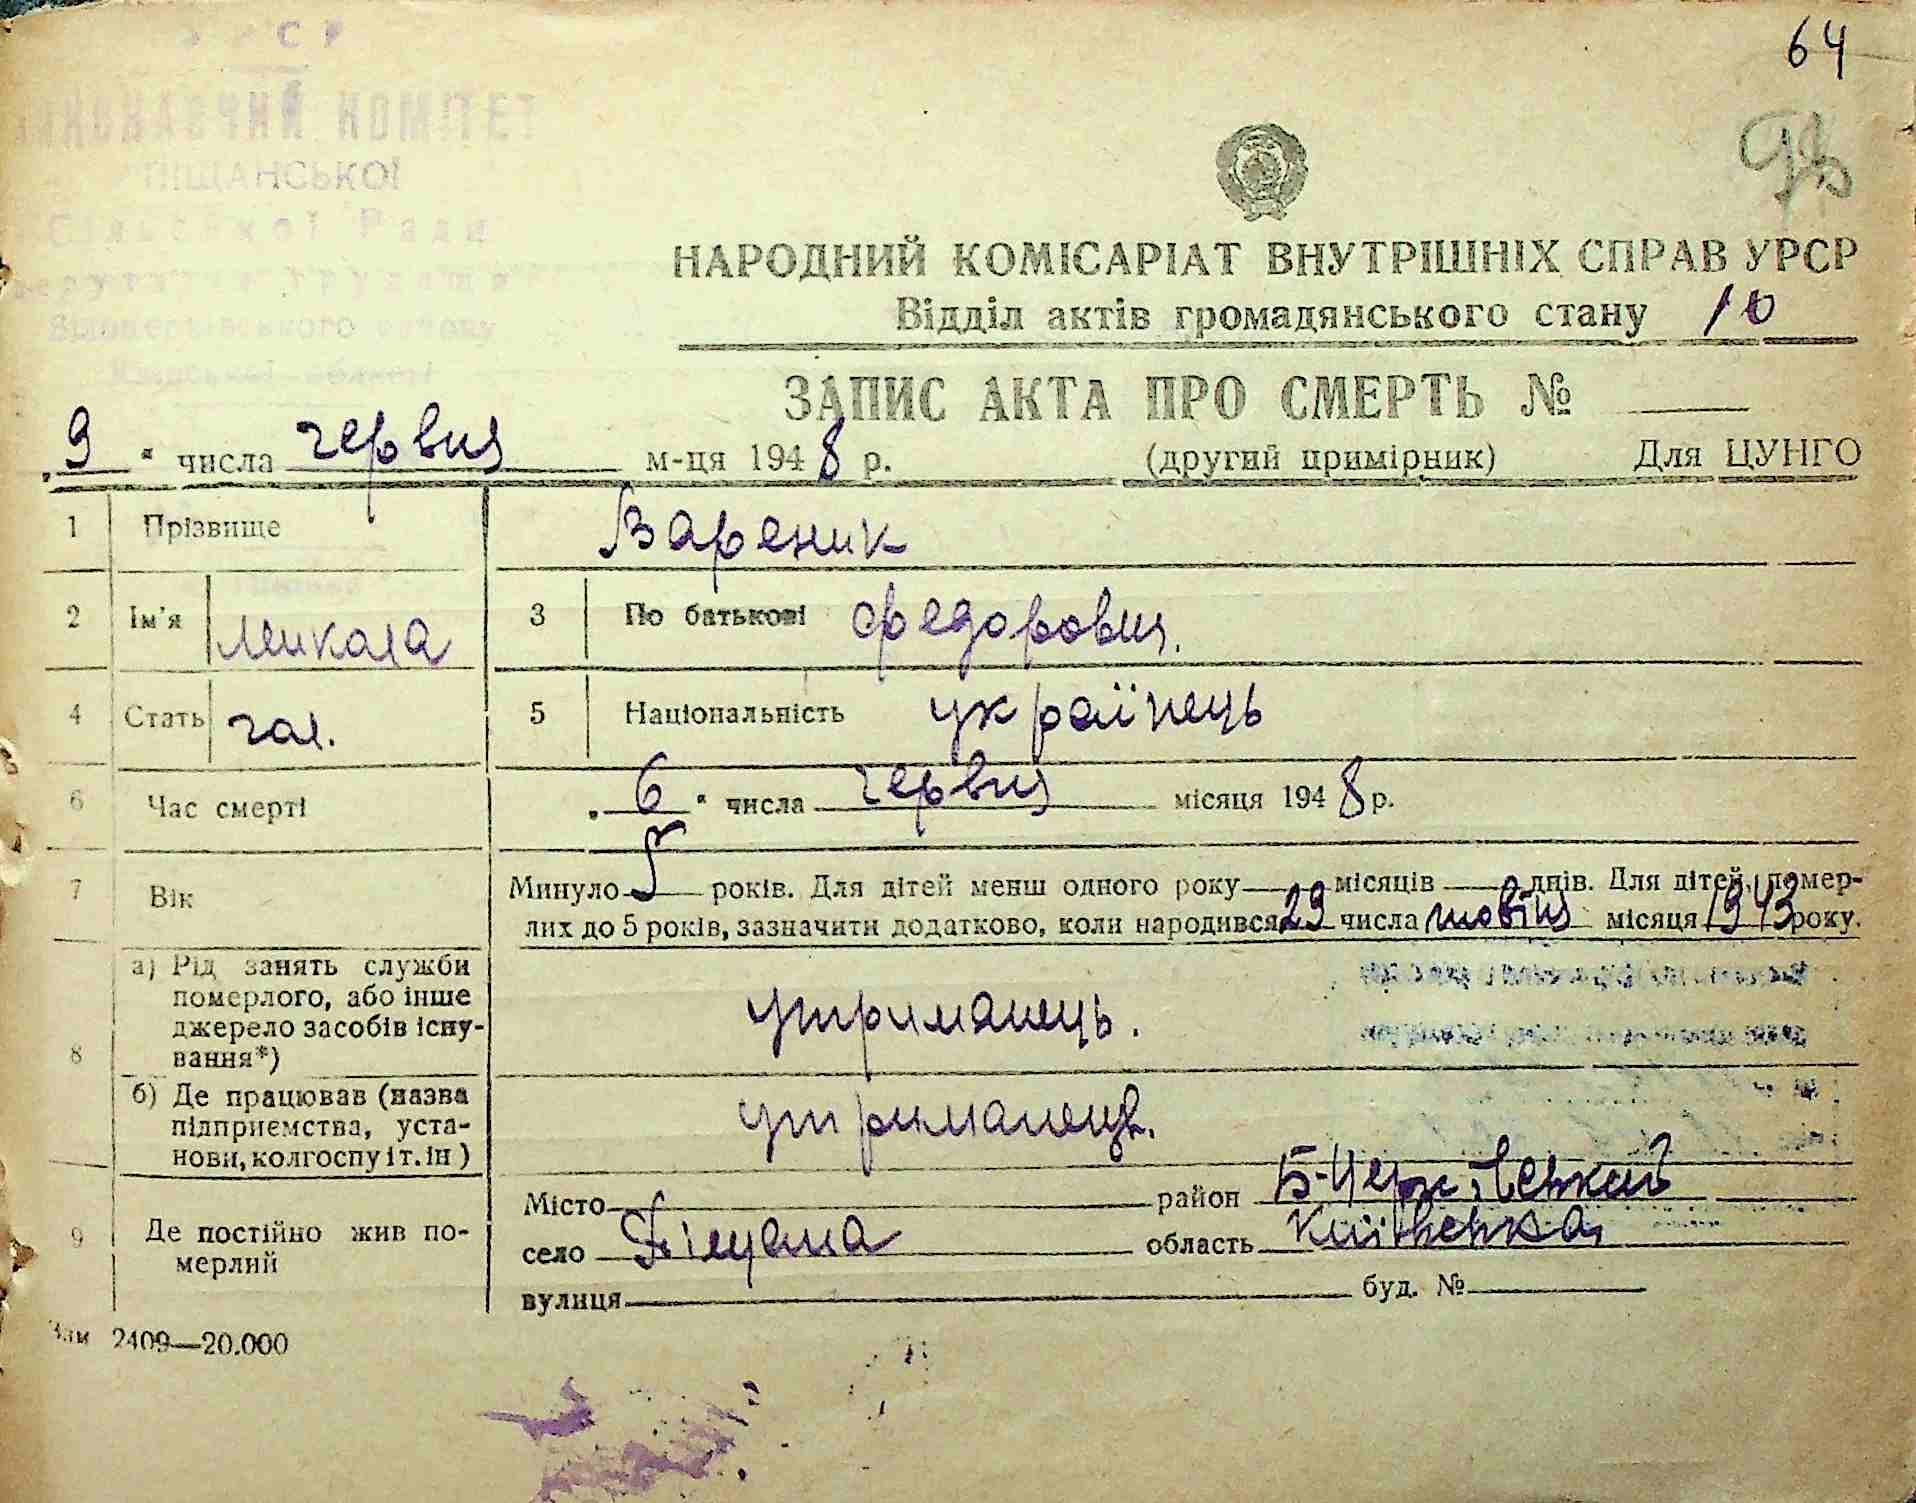 64
ВИКОНАВЧИЙ КОМІТЕТ
ПІЩАНСЬКОЇ
Сільської Ради
НАРОДНИЙ КОМІСАРІАТ ВНУТРІШНІХ СПРАВ УРСР
Відділ актів громадянського стану 10
ЗАПИС АКТА ПРО СМЕРТЬ №
„9“ числа червня м-ця 1948 р. (другий примірник) Для ЦУНГО
1 Прізвище Вареник
2 Ім'я Микола 3 По батькові Федорович.
4 Стать чол. 5 Національність українець
6 Час смерті „6“ числа червня місяця 1948 р.
7 Вік Минуло 5 років. Для дітей менш одного року місяців днів. Для дітей, помер-
лих до 5 років, зазначити додатково, коли народився 29 числа місяця 1943 року.
8 а) Рід занять служби
померлого, або інше
джерело засобів існу-
вання*) утриманець.
б) Де працював (назва
підприємства, уста-
нови, колгоспу і т. ін) утриманець.
9 Де постійно жив по-
мерлий
Місто район Б-Церківський
село Піщана область Київська
вулиця буд. №
Зам 2409—20.000